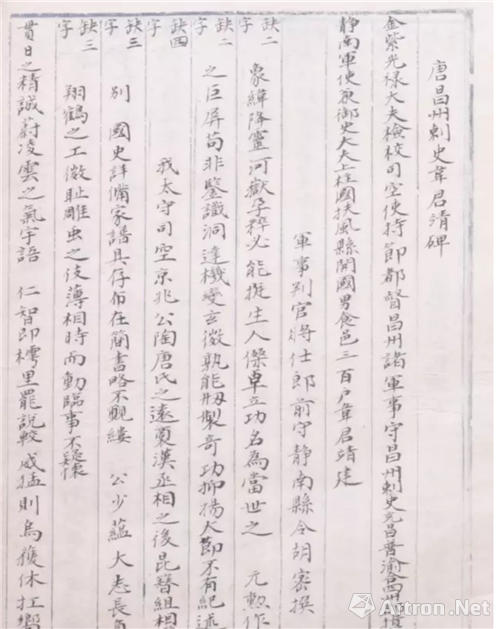 唐昌州刺史韋君靖碑
金紫光祿大夫檢校司空使持節都督昌州諸軍事守昌州刺史充昌普渝合四州
靜南軍使兼御史大夫上柱國扶風縣開國男食邑三百户韋君靖建
軍事判官將仕郎前守靜南縣令胡密撰
缺二字 象緯降靈河嶽孕粹必能挺生人傑卓立功名為當世之 元勳作
缺二字 之巨屏苟非鑒識洞達機變玄微孰能刱製奇功抑揚大節不有紀述
缺四字 我太守司空京兆公陶唐氏之遠裔漢丞相之後昆簪組相
缺三字 別 國史詳備家譜具存布在簡書略不覼縷 公少蘊大志長負
缺三字 翔鶴之工微恥雕虫之伎薄相時而動臨事不疑懷
貫日之精誠蔚凌雲之氣宇語 仁智即樗里罷説較 威猛則烏獲休扛嚮
Artron.Net